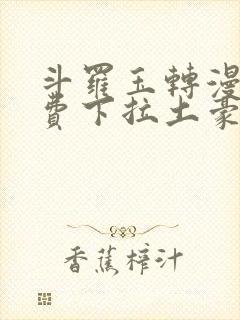 斗羅玉轉漫
費下拉土豪
香蕉榨汁